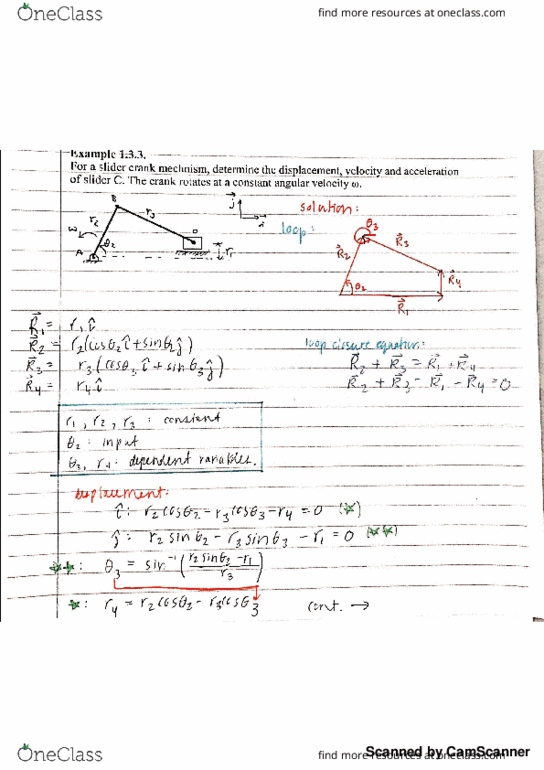 OneClass
find more resources at oneclass.com
Example 1.3.3.
For a slider crank mechnism, determine the displacement, velocity and acceleration
of slider C. The crank rotates at a constant angular velocity ω.
solution:
loop:
B
r₂
r₃
ω
A
θ₂
r₁
j
i
θ₃
R⃗₂
R⃗₃
R⃗₄
θ₂
R⃗₁
R⃗₁ = r₁ î
R⃗₂ = r₂(cosθ₂ î + sinθ₂ ĵ)
R⃗₃ = r₃(cosθ₃ î + sinθ₃ ĵ)
R⃗₄ = r₄ î
loop closure equation:
R⃗₂ + R⃗₃ = R⃗₁ + R⃗₄
R⃗₂ + R⃗₃ - R⃗₁ - R⃗₄ = 0
r₁, r₂, r₃ : constant
θ₂ : input
θ₃, r₄ : dependent variables.
Displacement:
î: r₂cosθ₂ - r₃cosθ₃ - r₄ = 0 (*)
ĵ: r₂ sinθ₂ - r₃ sinθ₃ - r₁ = 0 (**)
**: θ₃ = sin⁻¹((r₂sinθ₂ - r₁)/r₃)
*: r₄ = r₂cosθ₂ - r₃cosθ₃ cont. →
OneClass
find more resources at oneclass.com
Scanned by CamScanner